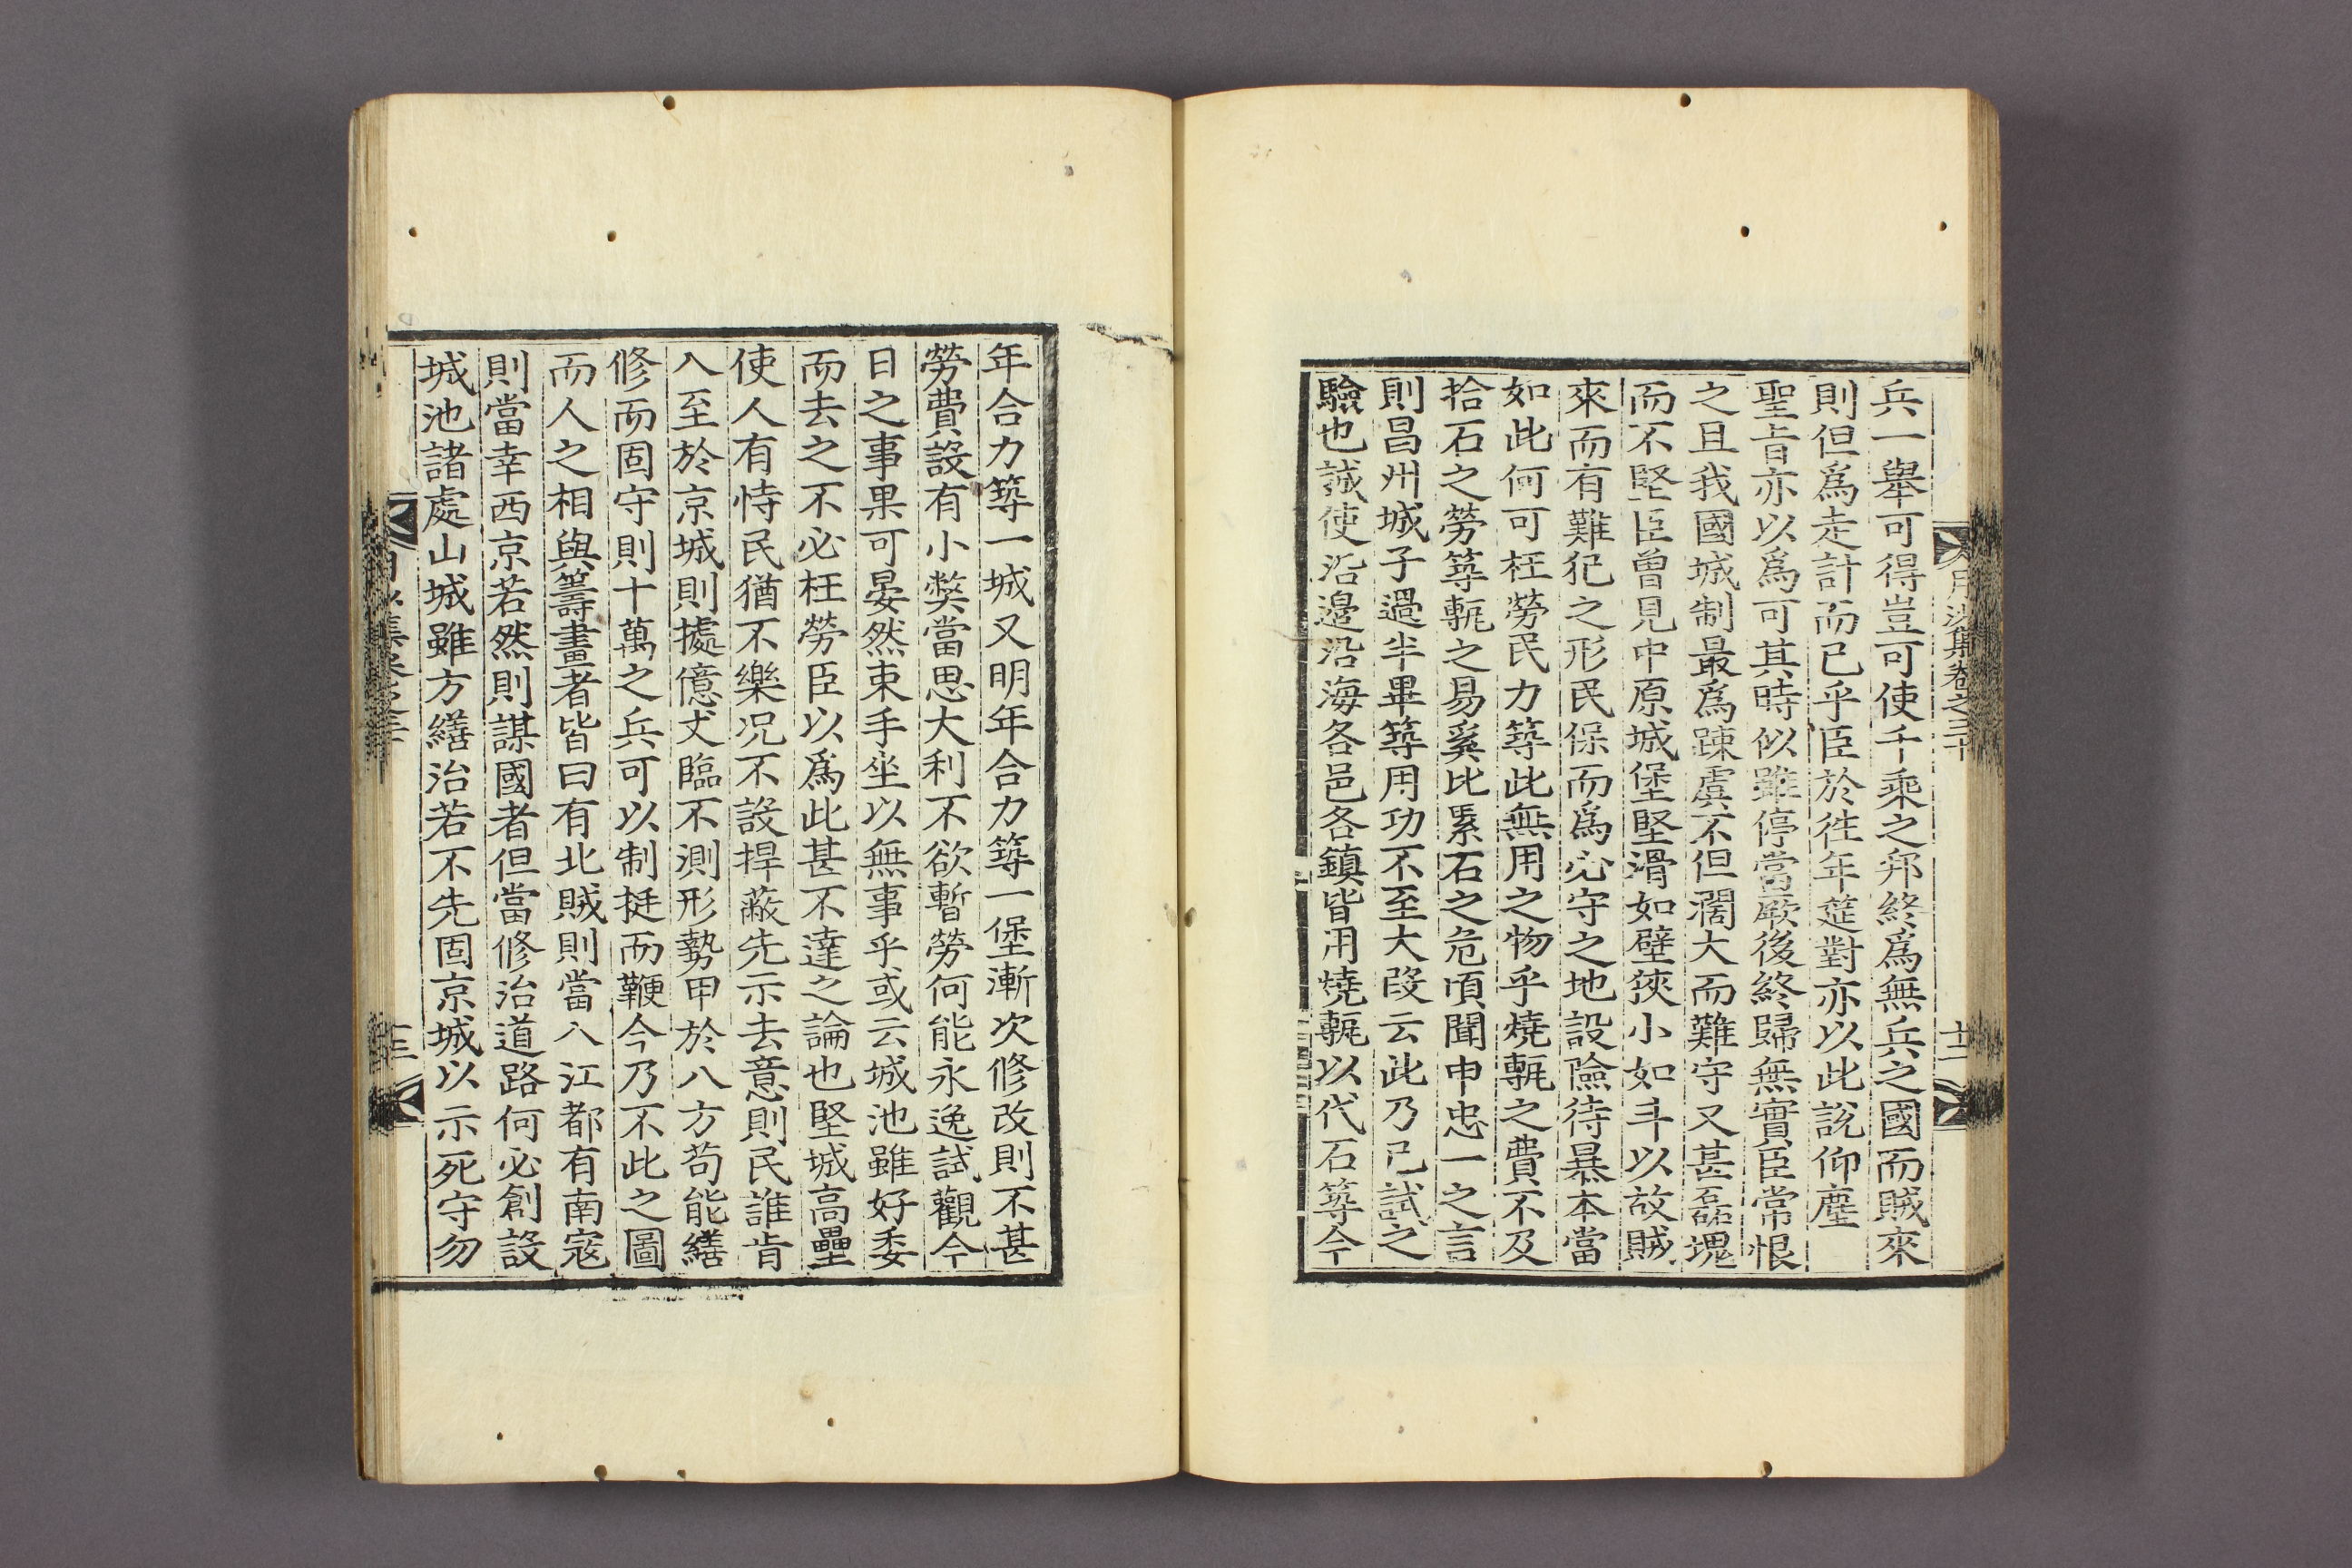 兵一擧可得豈可使千乘之邦終爲無兵之國而賊來
則但爲走計而已乎臣於徃年筵對亦以此說仰塵
聖旨亦以爲可其時似雖停當厥後終歸無實臣常恨
之且我國城制最爲踈虞不但濶大而難守又甚磊塊
而不堅臣曾見中原城堡堅滑如壁狹小如斗以故賊
來而有難犯之形民保而爲必守之地設險待暴本當
如此何可枉勞民力築此無用之物乎燒甎之費不及
拾石之勞築甎之易奚比累石之危頃聞申忠一之言
則昌州城子過半畢築用功不至大段云此乃已試之
驗也誠使沿邊沿海各邑各鎭皆用燒甎以代石築今
年合力築一城又明年合力築一堡漸次修改則不甚
勞費設有小弊當思大利不欲暫勞何能永逸試觀今
日之事果可晏然束手坐以無事乎或云城池雖好委
而去之不必枉勞臣以爲此甚不達之論也堅城高壘
使人有恃民猶不樂况不設捍蔽先示去意則民誰肯
入至於京城則據億丈臨不測形勢甲於八方苟能繕
修而固守則十萬之兵可以制挺而鞭今乃不此之圖
而人之相與籌畫者皆曰有北賊則當入江都有南寇
則當幸西京若然則謀國者但當修治道路何必創設
城池諸處山城雖方繕治若不先固京城以示死守勿
月沙集卷之三十
十二